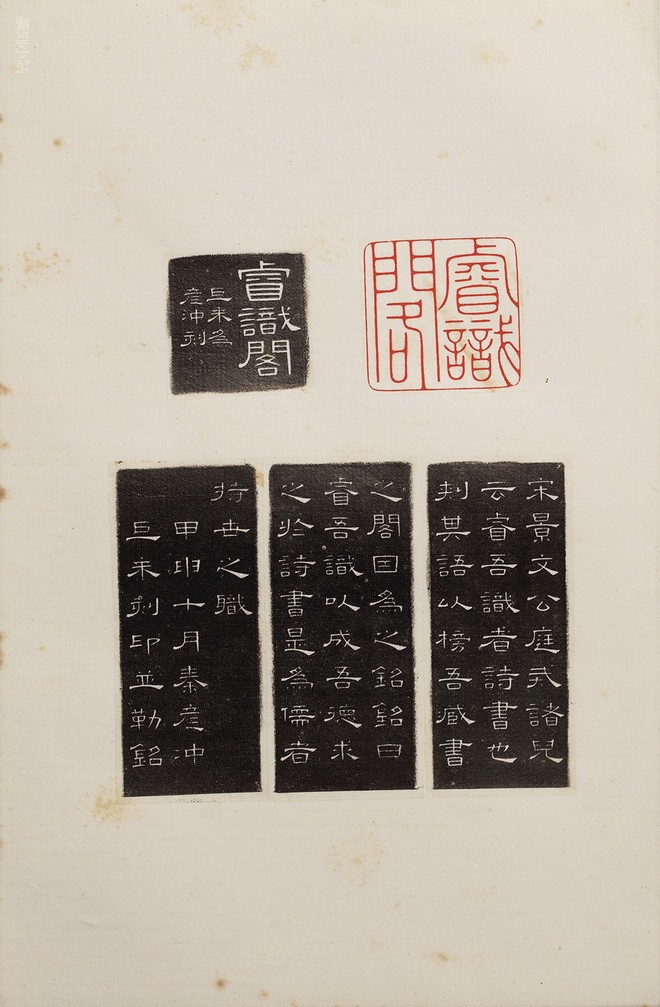 睿識
閣
睿識閣
巨来為
彥沖刻
宋景文公庭戒諸兒
云睿吾識者詩書也
刺其語以榜吾臧書
之閣因為之銘銘曰
睿吾識以成吾德求
之於詩書是為儒者
持世之職
甲申十月秦彥沖
巨来刻印並勒銘